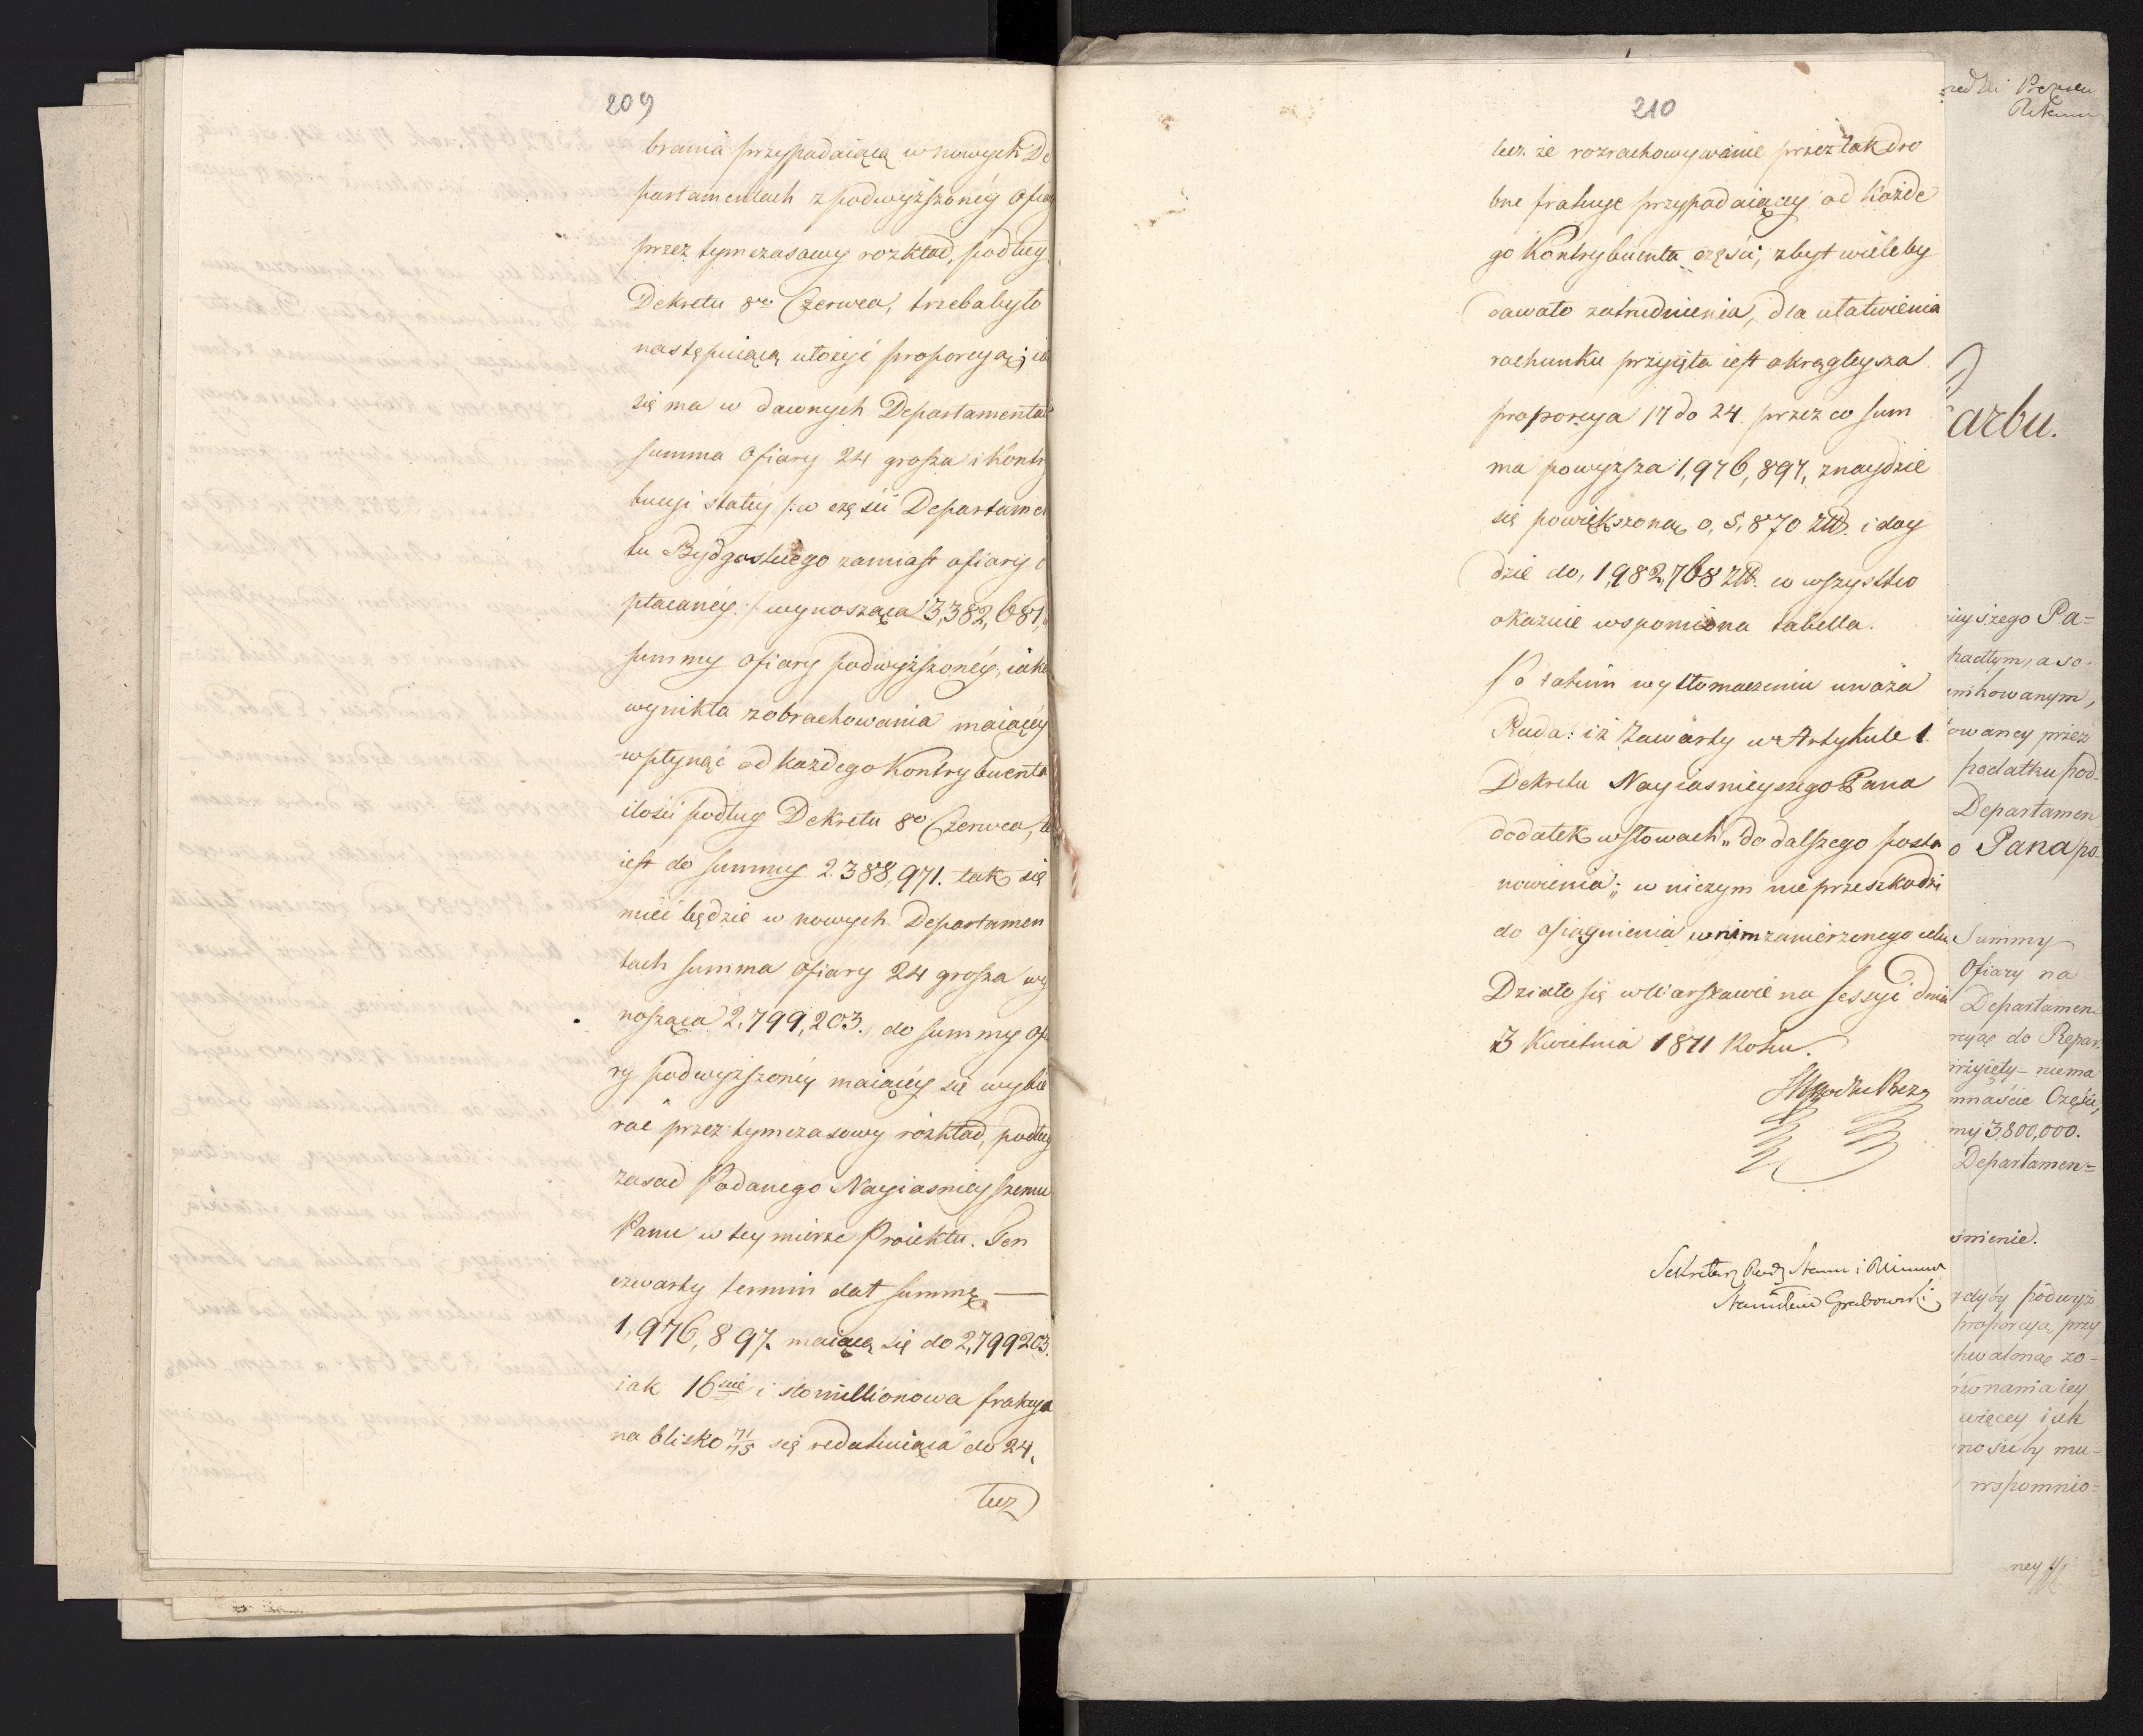 209
brania przypadaiącą w nowych De
partamentach z podwyższonéy ofia
przez tymczasowy rozkład, podług
Dekretu 8go Czerwca, trzebabyło
następuiącą ułożyć proporcyą; ia
się ma w dawnych Departamentac
summa Ofiary 24 grosza i Kontr
bucyi stałéy /: w części Departamen
tu Bydgoskiego zamiast ofiary
płaconéy :/ wynosząca 3,382,681,
summy ofiary podwyższonéy, iaka
wynikła z obrachowania maiącéy
wpłynąć od każdego Kontrybuenta
ilości podług Dekretu 8go Czerwca, to
iest do summy 2.388,971. tak się
mieć będzie w nowych Departamen
tach summa ofiary 24 grosza wy
nosząca 2,799,203. do summy ofia
ry podwyższonéy maiącéy się wybie
rać przez tymczasowy rozkład, podług
zasad Podanego Nayiaśnieyszemu
Panu w tey mierze Proiektu. Ten
czwarty termin dał summę —
1,976,897. maiącą się do 2,799203.
iak 16cie i stomillionowa frakcya
na blisko 71/75 się redukuiąca do 24,
lecz
210
lecz że rozrachowywanie przez tak dro
bne frakcye przypadaiącey od Każde
go Kontrybuenta części, zbyt wieleby
dawało zatrudnienia, dla ułatwienia
rachunku przyięta iest okrągleysza
proporcya 17 do 24. przez co sum
ma powyższa 1,976,897, znaydzie
się powiększoną o, 5,870 złł. i doy
dzie do, 1,982,768 złł. co wszystko
okazuie wspomiona tabella.
Po takim wytłomaczeniu uważa
Rada: iż Zawarty w Artykule 1.
Dekretu Nayiaśnieyszego Pana
dodatek w słowach „do dalszego posta
nowienia„ w niczym nie przeszkodzi
do osiągnienia w nim zamierzonego celu
Działo się w Warszawie na Sessyi dnia
3 Kwietnia 1811 Roku.
Sekretarz Rady Stanu i Minist
Stanisław Grabowski
arbu.
ieyszego Pa=
padłym, a so-
nikowanym,
owaney przez
podatku pod-
Departamen
o Pana po-
Summy
Ofiary na
Departamen
rcyą do Repar
przyięty - niema
mnaście Części,
my 3,800,000.
Departamen=
śnienie.
gdyby podwyż
proporcya przy
chwaloną zo-
równania iey
więcey iak
nosićby mu-
wspomnio=
ney